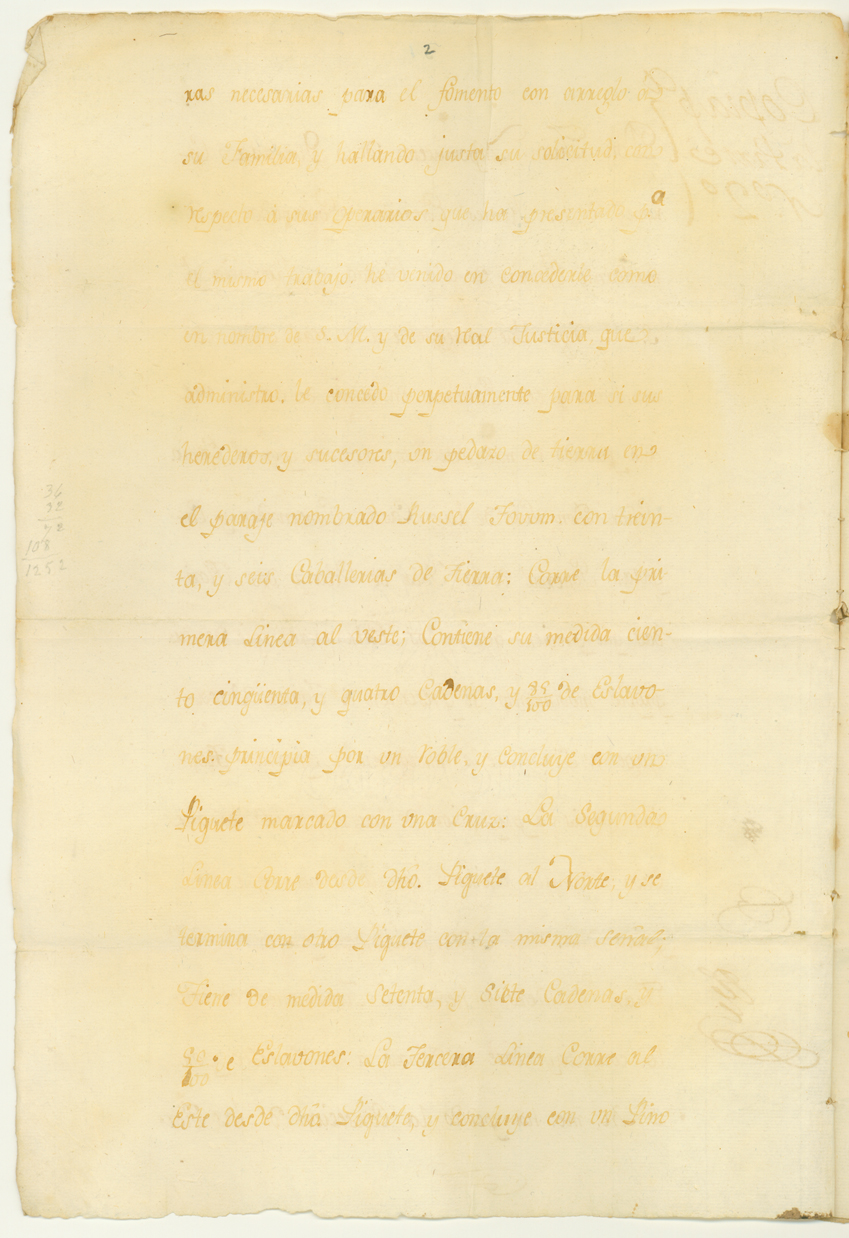 2
ras necesarias para el fomento con arreglo á
su Familia, y hallando justa su solicitud, con
respecto á sus Operarios, que ha presentado p.ª
el mismo trabajo, he venido en concederle como
en nombre de S. M. y de su Real Justicia, que
administro, le concedo perpetuamente para si sus
herederos, y sucesores, un pedazo de tierra en
el paraje nombrado Russel Tovom. con trein-
ta, y seis Caballerias de Tierra: Corre la pri-
mera Linea al veste; Contiene su medida cien-
to cinqüenta, y quatro Cadenas, y de Eslavo-
nes. principia por un roble, y concluye con un
Piquete marcado con una Cruz: La Segunda
Linea Corre desde dho. Piquete al Norte, y se
termina con otro Piquete con la misma señal;
Tiene de medida Setenta, y Siete Cadenas, y
80/100 e Eslavones: La Tercera Linea Corre al
Este desde dho. Piquete, y concluye con un Pino
36
32
72
108
1252